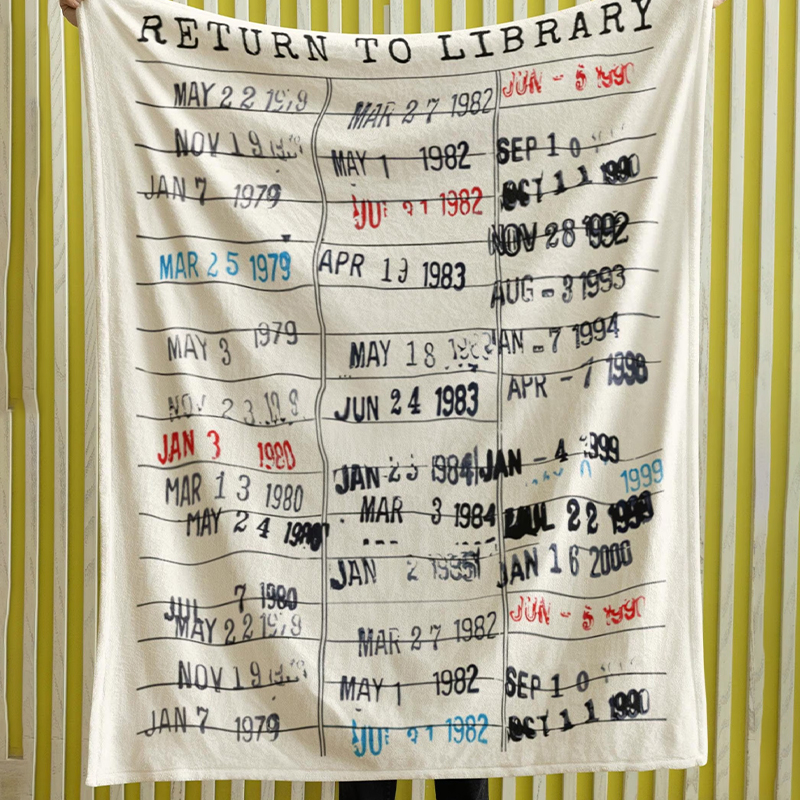 RETURN TO LIBRARY
MAY 22 1979
NOV 19
JAN 7 1979
MAR 25 1979
MAY 3 1979
NOV 23
JAN 3 1980
MAR 13 1980
MAY 24 1980
JUL 7 1980
MAY 22 1979
NOV 19
JAN 7 1979
MAR 27 1982
MAY 1 1982
1982
APR 19 1983
MAY 18
JUN 24 1983
JAN 23 1984
MAR 3 1984
JAN 2
MAR 27 1982
MAY 1 1982
1982
JUN - 5 1990
SEP 10
OCT 11 1990
NOV 28 1992
AUG - 3 1993
AN - 7 1994
APR - 7 1998
JAN - 4 1999
1999
JUL 22 1999
JAN 16 2000
JUN - 5 1990
SEP 10
OCT 11 1990